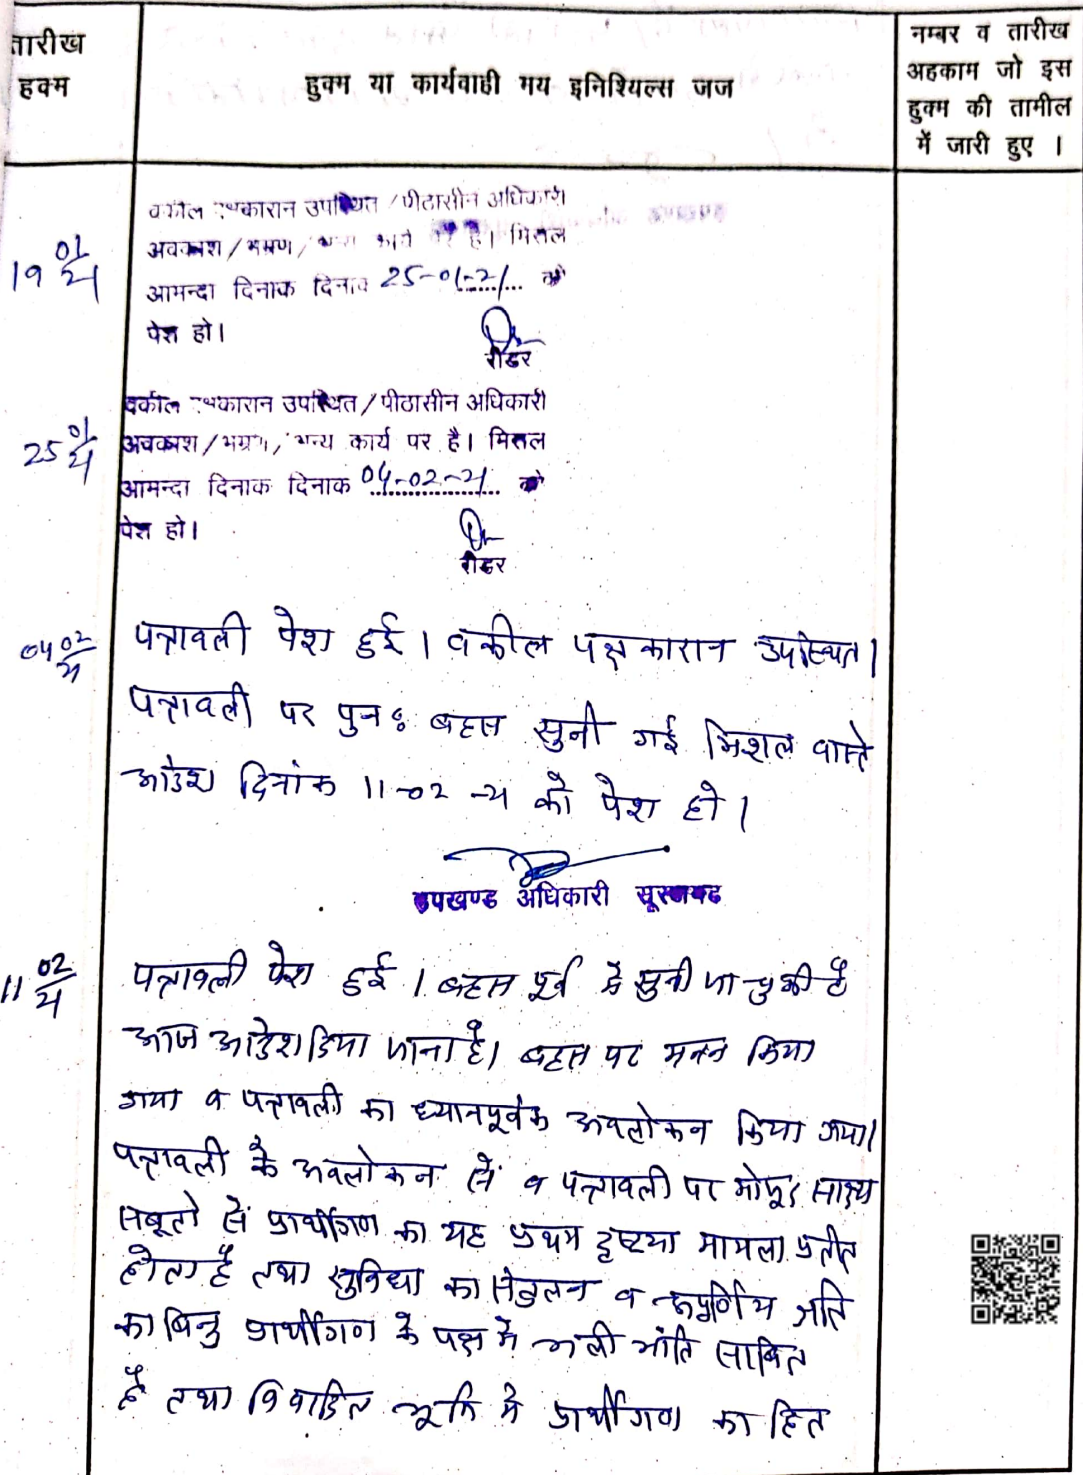 तारीख
हुक्म
हुक्म या कार्यवाही मय इनिशियल्स जज
नम्बर व तारीख
अहकाम जो इस
हुक्म की तामील
में जारी हुए ।
19 01/21
वकील पक्षकारान उपस्थित / पीठासीन अधिकारी
अवकाश / भ्रमण / अन्य कार्य पर है। मिसल
आमन्दा दिनाक दिनाक 25-01-21 को
पेश हो।
रीडर
25 01/21
वकील पक्षकारान उपस्थित / पीठासीन अधिकारी
अवकाश / भ्रमण / अन्य कार्य पर है। मिसल
आमन्दा दिनाक दिनाक 04-02-21 को
पेश हो।
रीडर
04 02/21
पत्रावली पेश हुई । वकील पक्षकारान उपस्थित ।
पत्रावली पर पुनः बहस सुनी गई मिशल वास्ते
आदेश दिनांक 11-02-21 को पेश हो ।
उपखण्ड अधिकारी सूरजगढ
11 02/21
पत्रावली पेश हुई । बहस पूर्व में सुनी जा चुकी है
आज आदेश दिया जाना है। बहस पर मनन किया
गया व पत्रावली का ध्यानपूर्वक अवलोकन किया गया।
पत्रावली के अवलोकन से व पत्रावली पर मौजूद साक्ष्य
सबूतो से प्रार्थीगण का यह प्रथम दृष्टया मामला प्रतीत
होता है तथा सुविधा का संतुलन व अपूर्णिय क्षति
का बिन्दु प्रार्थीगण के पक्ष में भली भांति साबित
है तथा विवादित भूमि में प्रार्थीगण का हित